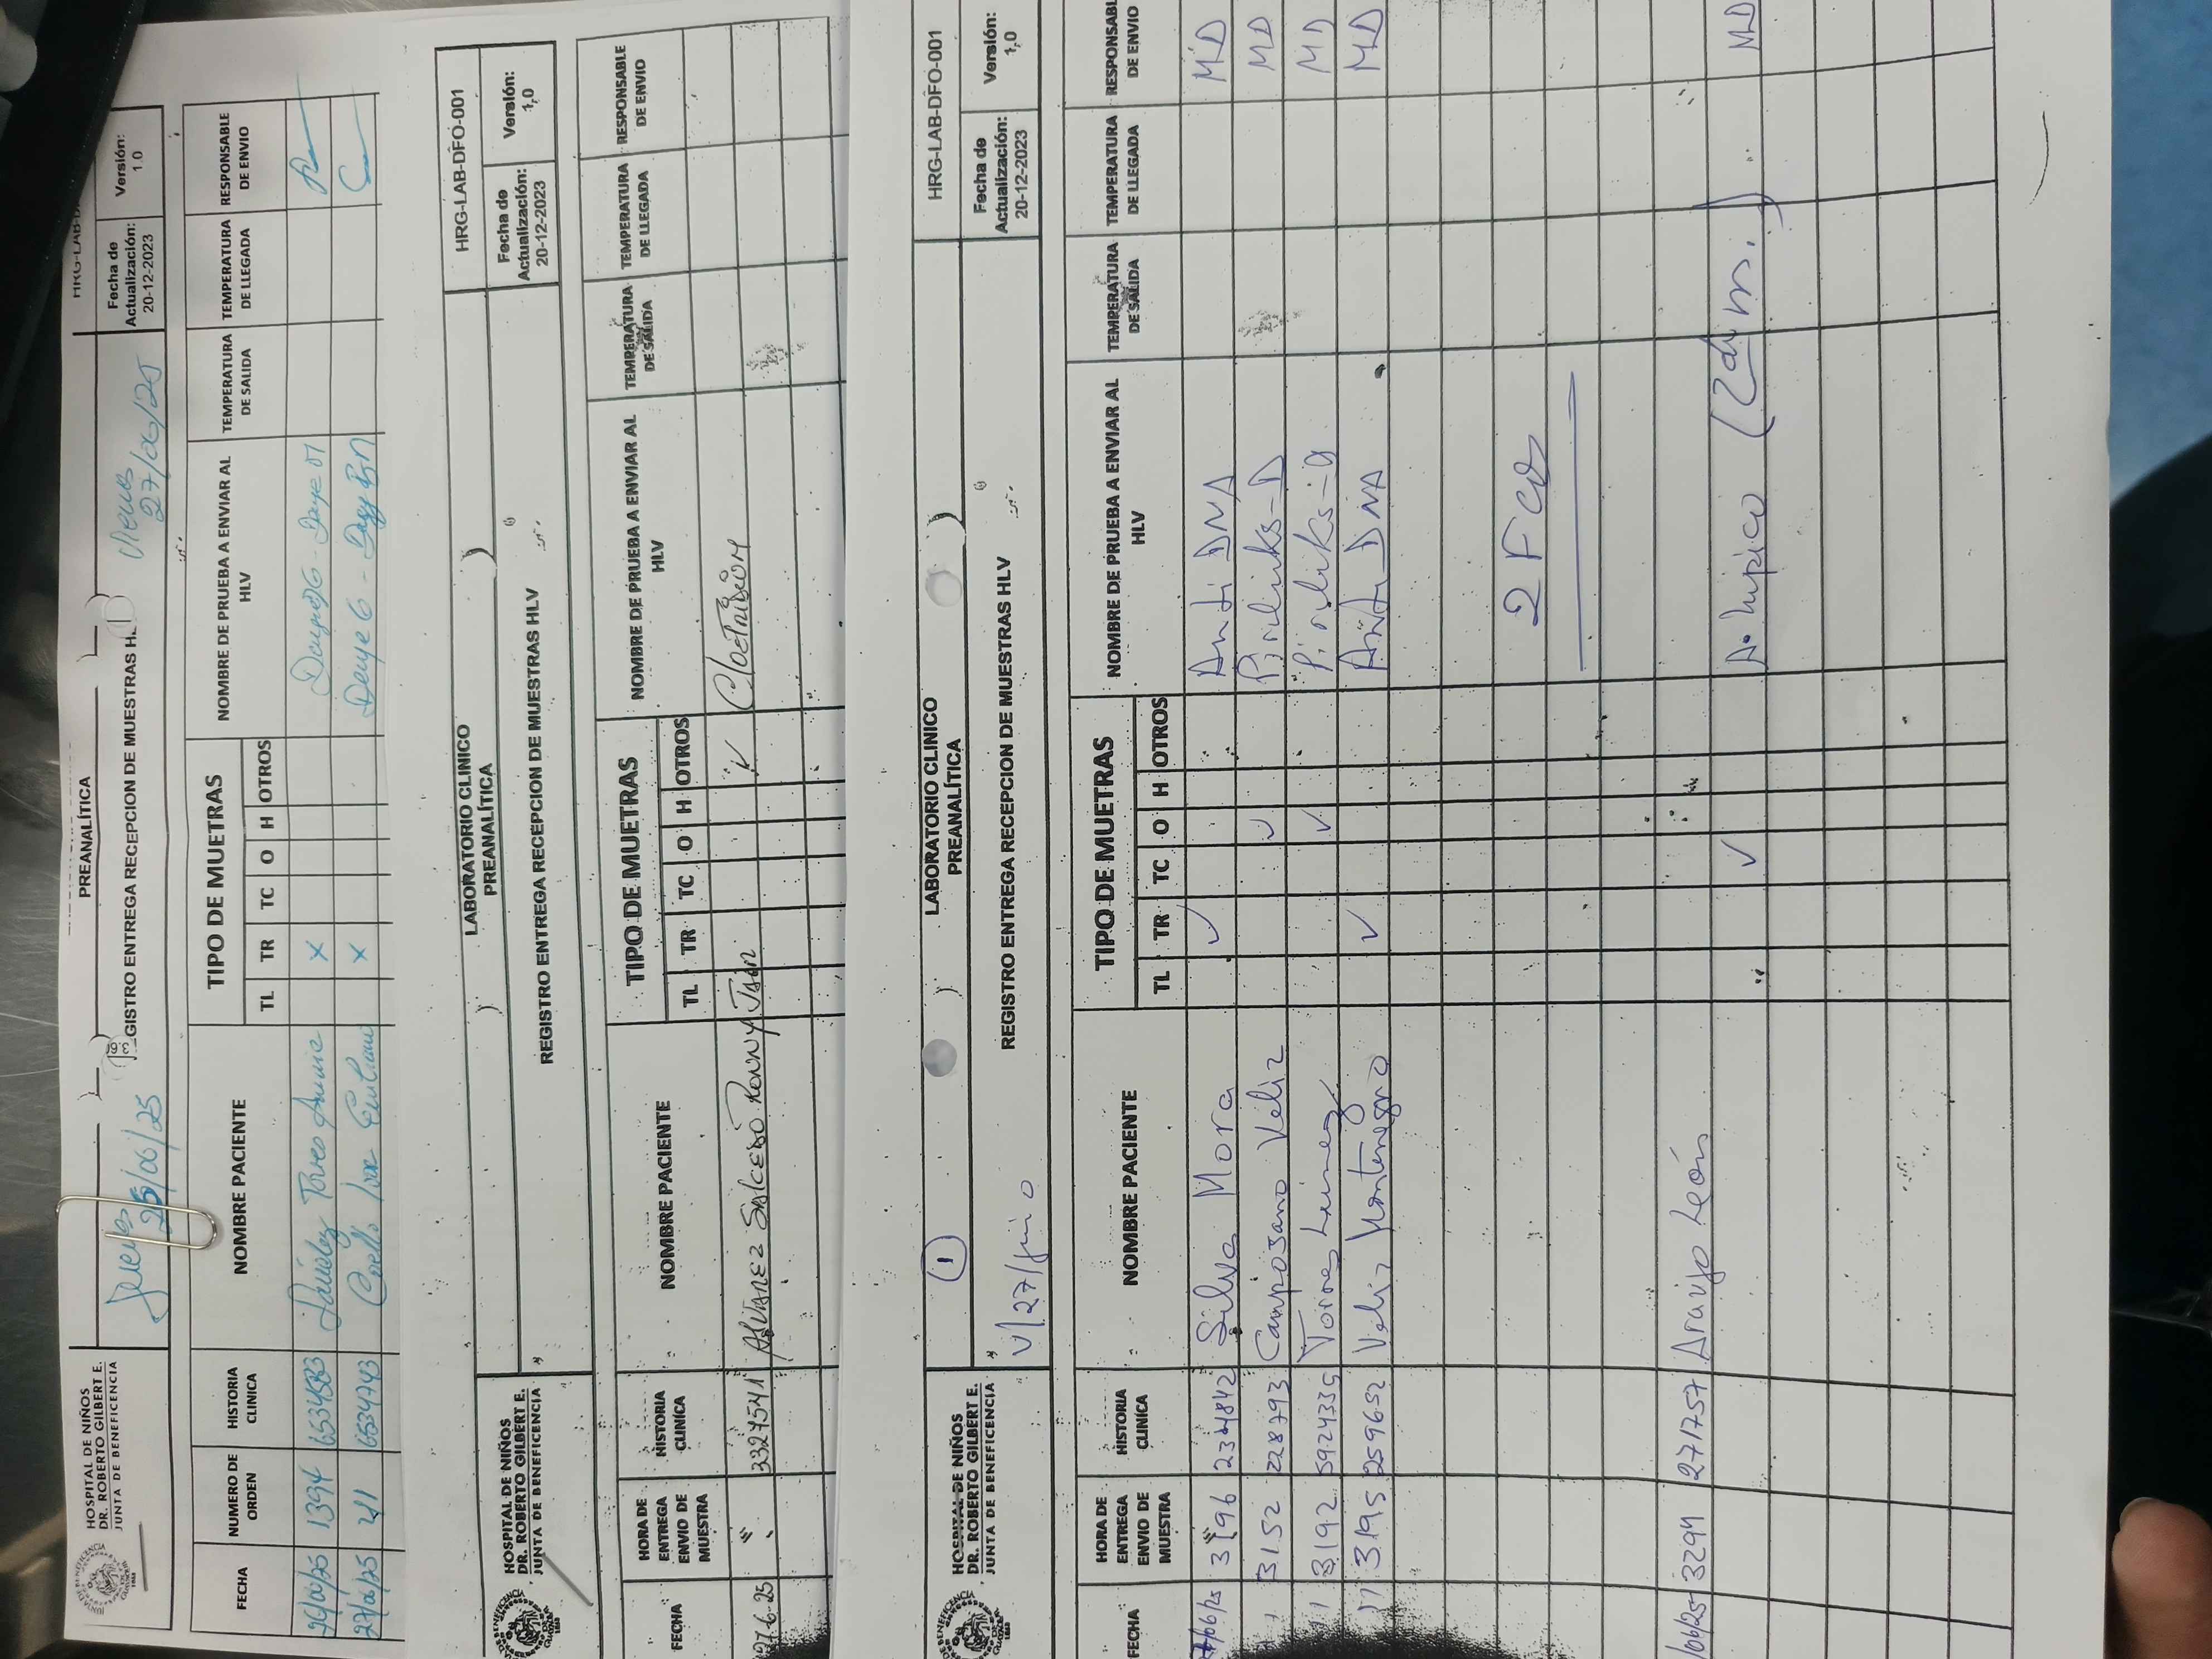 HOSPITAL DE NIÑOS
DR. ROBERTO GILBERT E.
JUNTA DE BENEFICENCIA
PREANALÍTICA
Jueves
26/06/25
Viernes
27/06/25
Fecha de Actualización: 20-12-2023
Versión: 1.0
FECHA NUMERO DE ORDEN HISTORIA CLINICA NOMBRE PACIENTE TIPO DE MUETRAS NOMBRE DE PRUEBA A ENVIAR AL HLV TEMPERATURA DE SALIDA TEMPERATURA DE LLEGADA RESPONSABLE DE ENVIO
TL TR TC O H OTROS
26/06/25 1394 x
27/06/25 6534743 x
HOSPITAL DE NIÑOS
DR. ROBERTO GILBERT E.
JUNTA DE BENEFICENCIA
LABORATORIO CLINICO
PREANALÍTICA
REGISTRO ENTREGA RECEPCION DE MUESTRAS HLV
HRG-LAB-DFO-001
Fecha de Actualización: 20-12-2023
Versión: 1.0
FECHA HORA DE ENTREGA ENVIO DE MUESTRA HISTORIA CLINICA NOMBRE PACIENTE TIPO DE MUETRAS NOMBRE DE PRUEBA A ENVIAR AL HLV TEMPERATURA DE SALIDA TEMPERATURA DE LLEGADA RESPONSABLE DE ENVIO
TL TR TC O H OTROS
27.6.25 Salcedo Kenny ✓ Clostridium
HOSPITAL DE NIÑOS
DR. ROBERTO GILBERT E.
JUNTA DE BENEFICENCIA
1
LABORATORIO CLINICO
PREANALÍTICA
REGISTRO ENTREGA RECEPCION DE MUESTRAS HLV
V/27/junio
HRG-LAB-DFO-001
Fecha de Actualización: 20-12-2023
Versión: 1.0
FECHA HORA DE ENTREGA ENVIO DE MUESTRA HISTORIA CLINICA NOMBRE PACIENTE TIPO DE MUETRAS NOMBRE DE PRUEBA A ENVIAR AL HLV TEMPERATURA DE SALIDA TEMPERATURA DE LLEGADA RESPONSABLE DE ENVIO
TL TR TC O H OTROS
/06/25 3196 Silva Mora ✓ Anti DNA MD
3152 228793 Camposano Veliz ✓ MD
3192 5924335 Torres ✓ MD
3195 259652 Veliz Montenegro ✓ Anti DNA MD
2 Fcos
/06/25 3294 271757 Araujo León
✓ MD